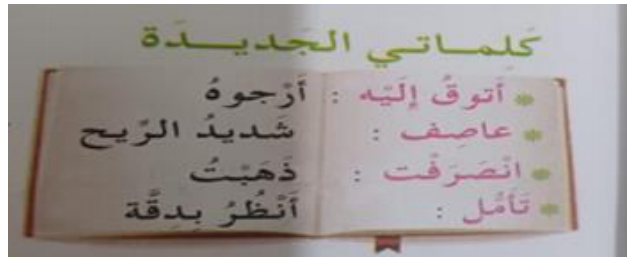 كَلِمـاتـي الجَديـدَة
* أَتوقُ إِلَيْه : أَرْجوهُ
* عاصِف : شَديدُ الرّيح
* انْصَرَفْت : ذَهَبْتُ
* تَأَمُّل : أَنْظُرُ بدِقَّة